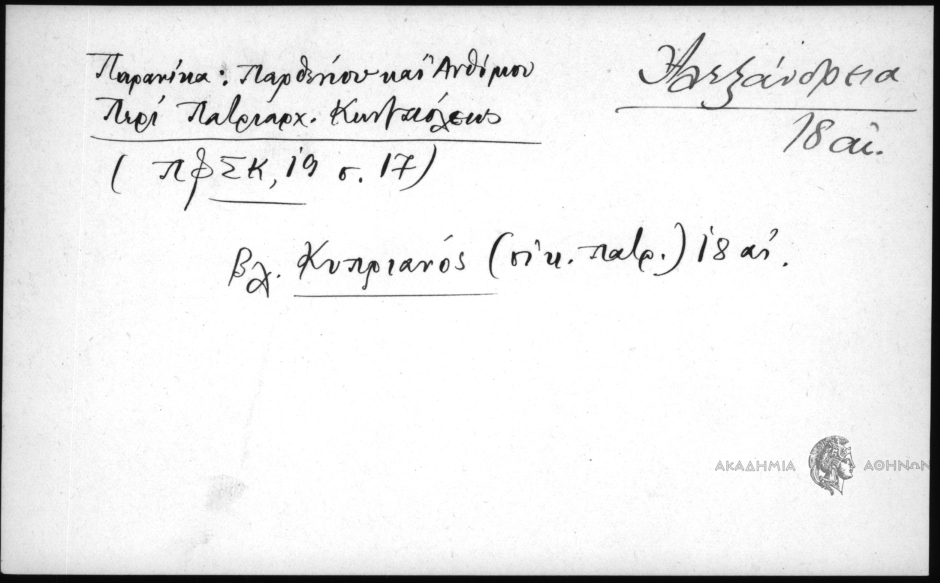 Παρανίκα: Παρθενίου καὶ Ἀνθίμου
Περὶ Πατριαρχ. Κωνπόλεως
(ΠΦΣΚ, 19 σ. 17)
Ἀλεξάνδρεια
18 αἰ.
βλ. Κυπριανός (οἰκ. πατρ.) 18 αἰ.
ΑΚΑΔΗΜΙΑ ΑΘΗΝΩΝ